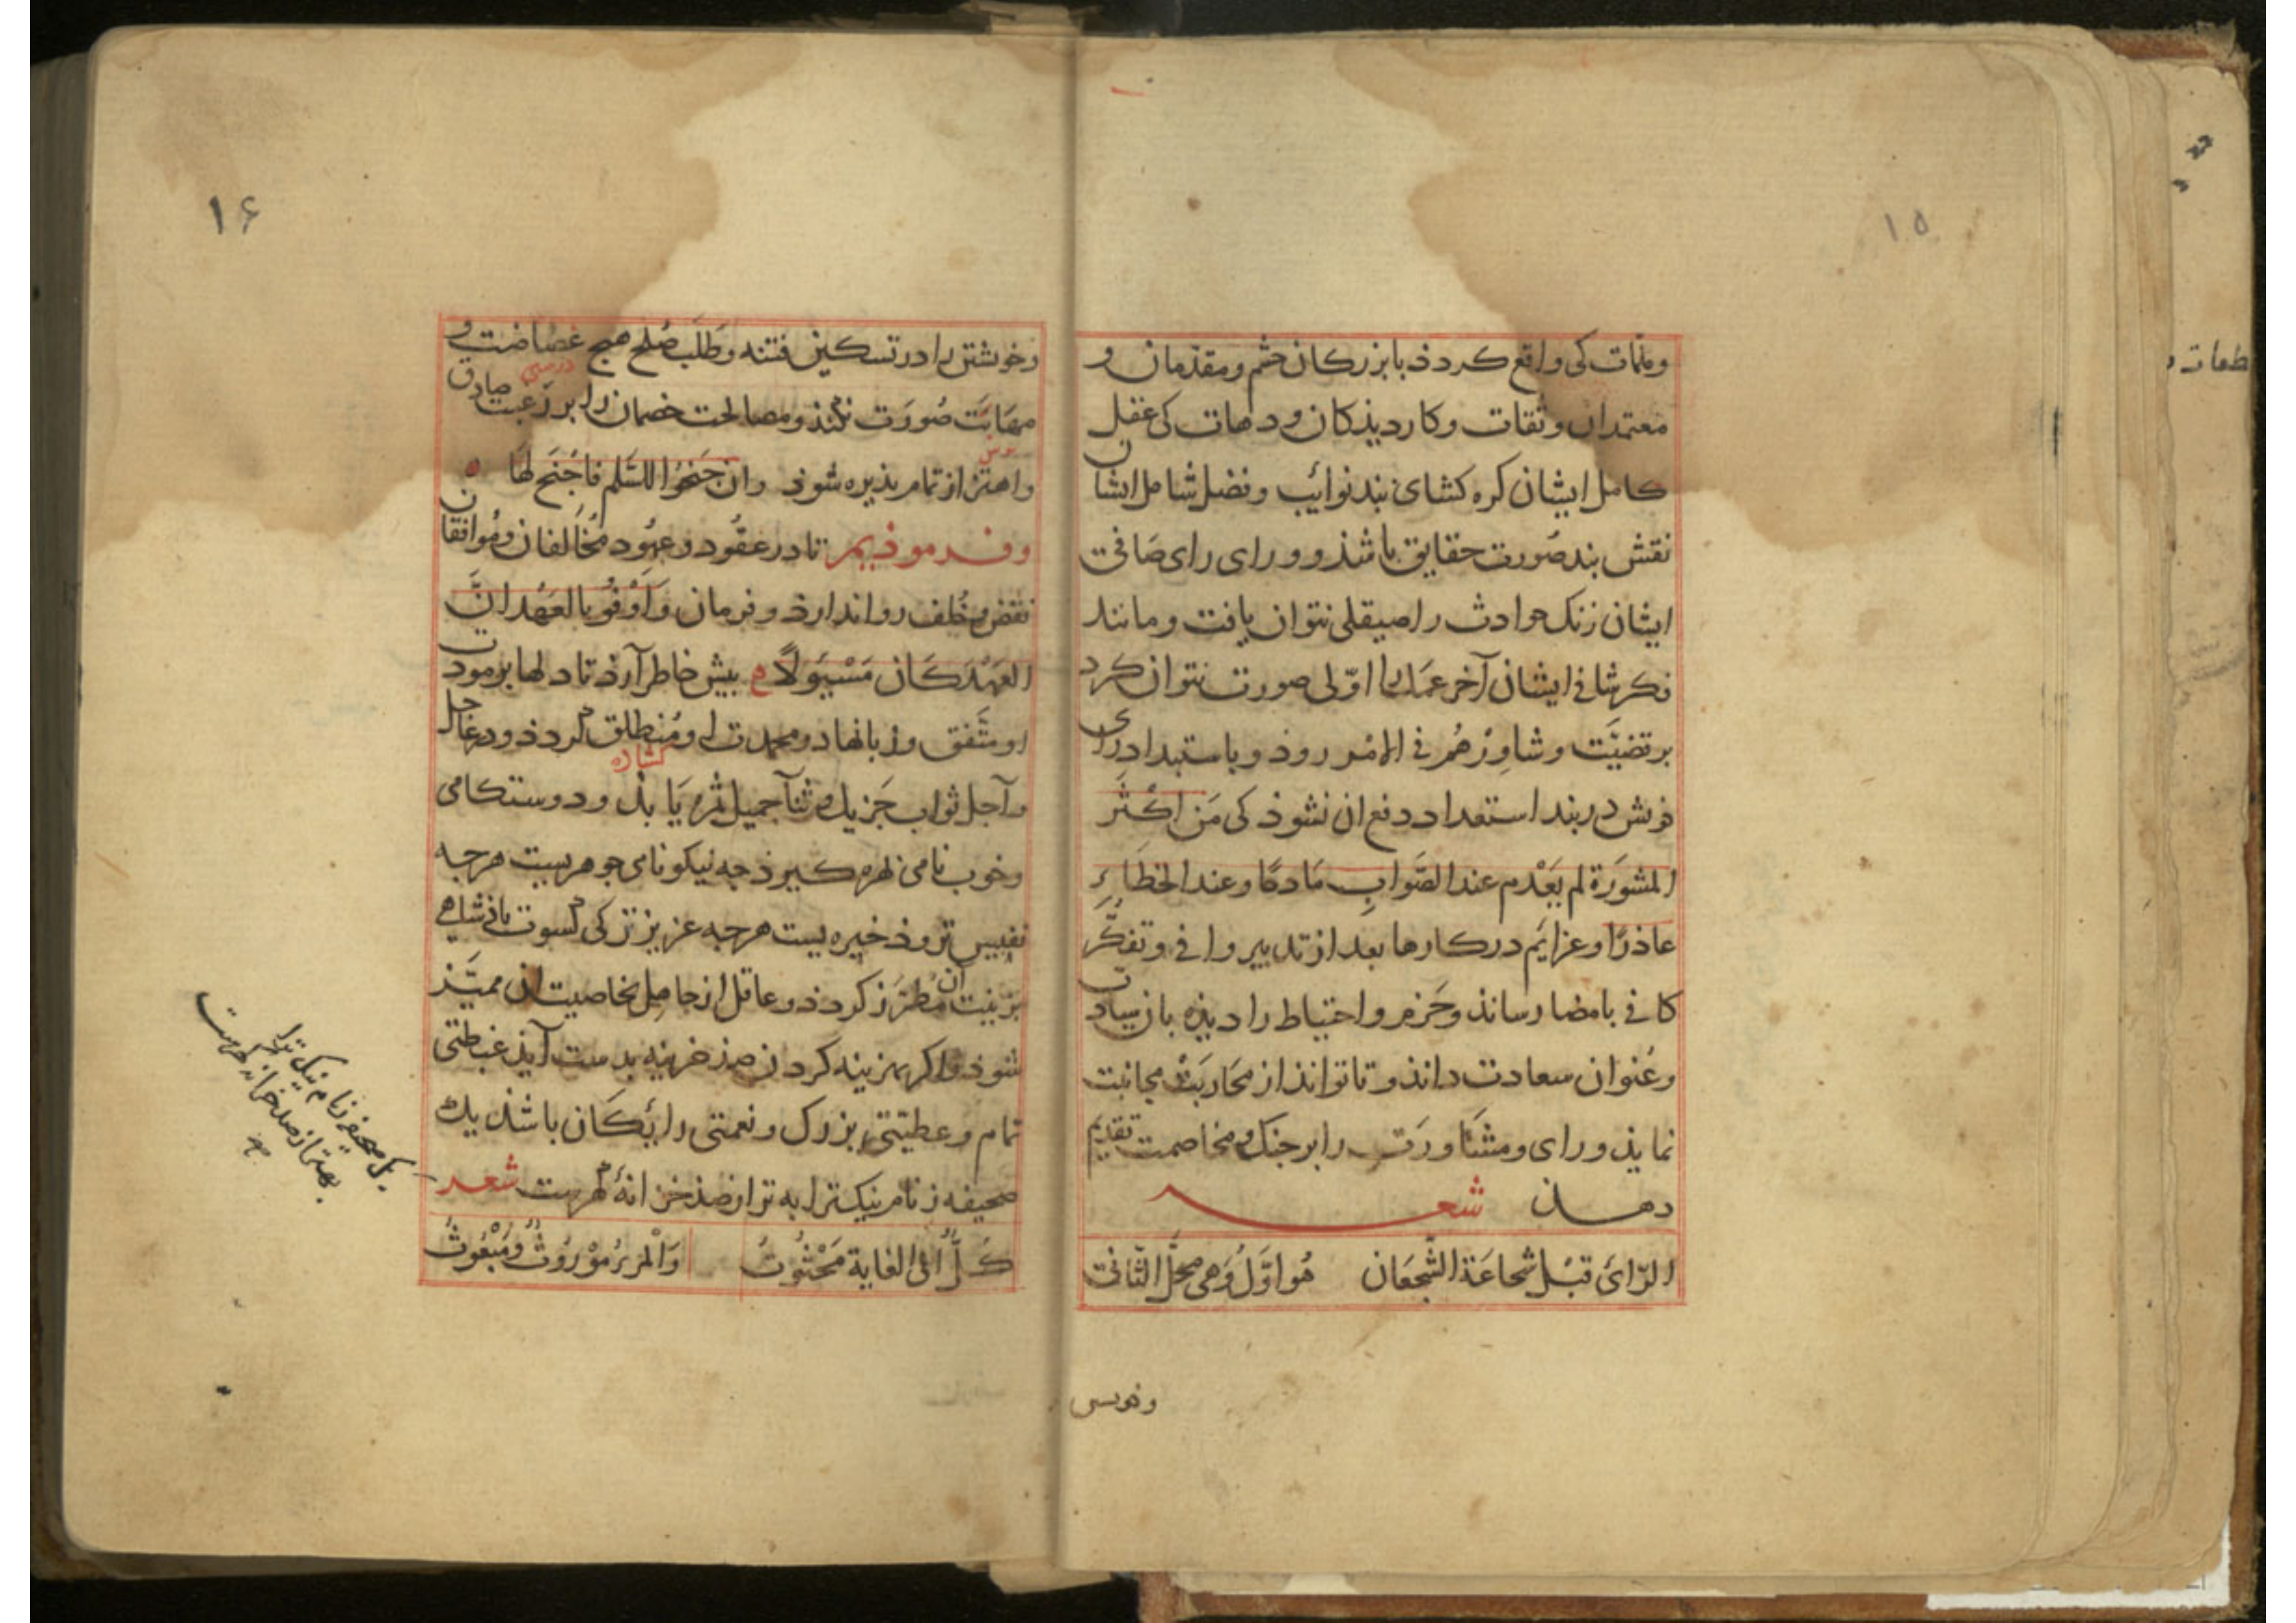 ۱۵
وملمات کی واقع کردذ با بزرکان حشم ومقدمان و
معتمدان وثقات وکاردیذکان و دهات کی عقل
کامل ایشان کره کشای بند نوائب وفضل شامل ایشان
نقش بند صُورت حقایق باشذ و ورای رای صَافی
ایشان زنک حوادث را صیقلی نتوان یافت ومانند
فکر شافی ایشان آخر عمَل را اوّلی صورت نتوان کرد
بر قضیَّت وشاوِرْهُم فی الامْر روذ وباستبداد رای
خوش دربند استعداد دفع ان نشوذ کی مَن اکْثَر
المشورَة لم یَعْدم عند الصَّوابِ مَادحًا وعند الخطَاءِ
عاذرًا وعزایَم در کارها بعد از تدبیر وافی وتفکُّر
کافی بامضا رسانذ وحَزم واحتیاط را دیذه بان
وعُنوان سعادت دانذ و تا توانذ از محَاربَتْ مجانبت
نمایذ ورای ومشَاورَت را بر جنک ومخاصمت تقدیم
دهـــان شعـــر
الرّایَ قبْل شجاعَة الشّجعَان هُو اوَّلُ وَهی محَلّ الثّانی
وخویش
۱۶
وخوشتن را در تسکین فتنه وطَلَب صُلح هیچ غضاضت و
مهَابَت صُورَت نکنذ ومصالحت خصمان را بر رَغبت صادق
واهتزاز تمام بذیره شوذ وان جَنحُوا للسَّلم فاجْنَح لهَا
وفـرموذیـم تا در عقُود وعهُود مخَالفان ومُوافقان
نقض وخُلف روا ندارذ وفرمان وَاَوْفُو بالعَهْد انَّ
العَهْدَ کَان مَسْئِوَلًا بیش خاطر آرذ تا دلها بر مودت
او متَّفق وزبانها در محمدت او مُنطلق کردذ ودر عاجل
کشاده
وآجل ثواب جَزیل وثنآ جمیل ثمره یَابذ و دوستکامی
وخوب نامی بهره کیرذ چه نیکو نامی جوهریست هرچه
نفیس تر وذخیره یست هرچه عزیز تر کی کسوت باذشاهی
بزینت آن مُطَرَّز کردذ وعاقل از جاهِل بخاصیت ان ممیَّز
شوذ واکر بهزینه کردن صذ خزینه بدست آیذ غبطتی
تمام وعطیّتی بزرک ونعمتی رایکَان باشذ یک
صحیفه ز نام نیک ترا به تر از صذ خزانهٔ کهرست شعـر
کـلٌّ الی الغایة مَحْثوُثُ وَالْمرءُ مَوْروُثٌ ومَبْعُوثُ
یک صحیفه ز نام نیک ترا
بهتر از صد خزانه کهرست